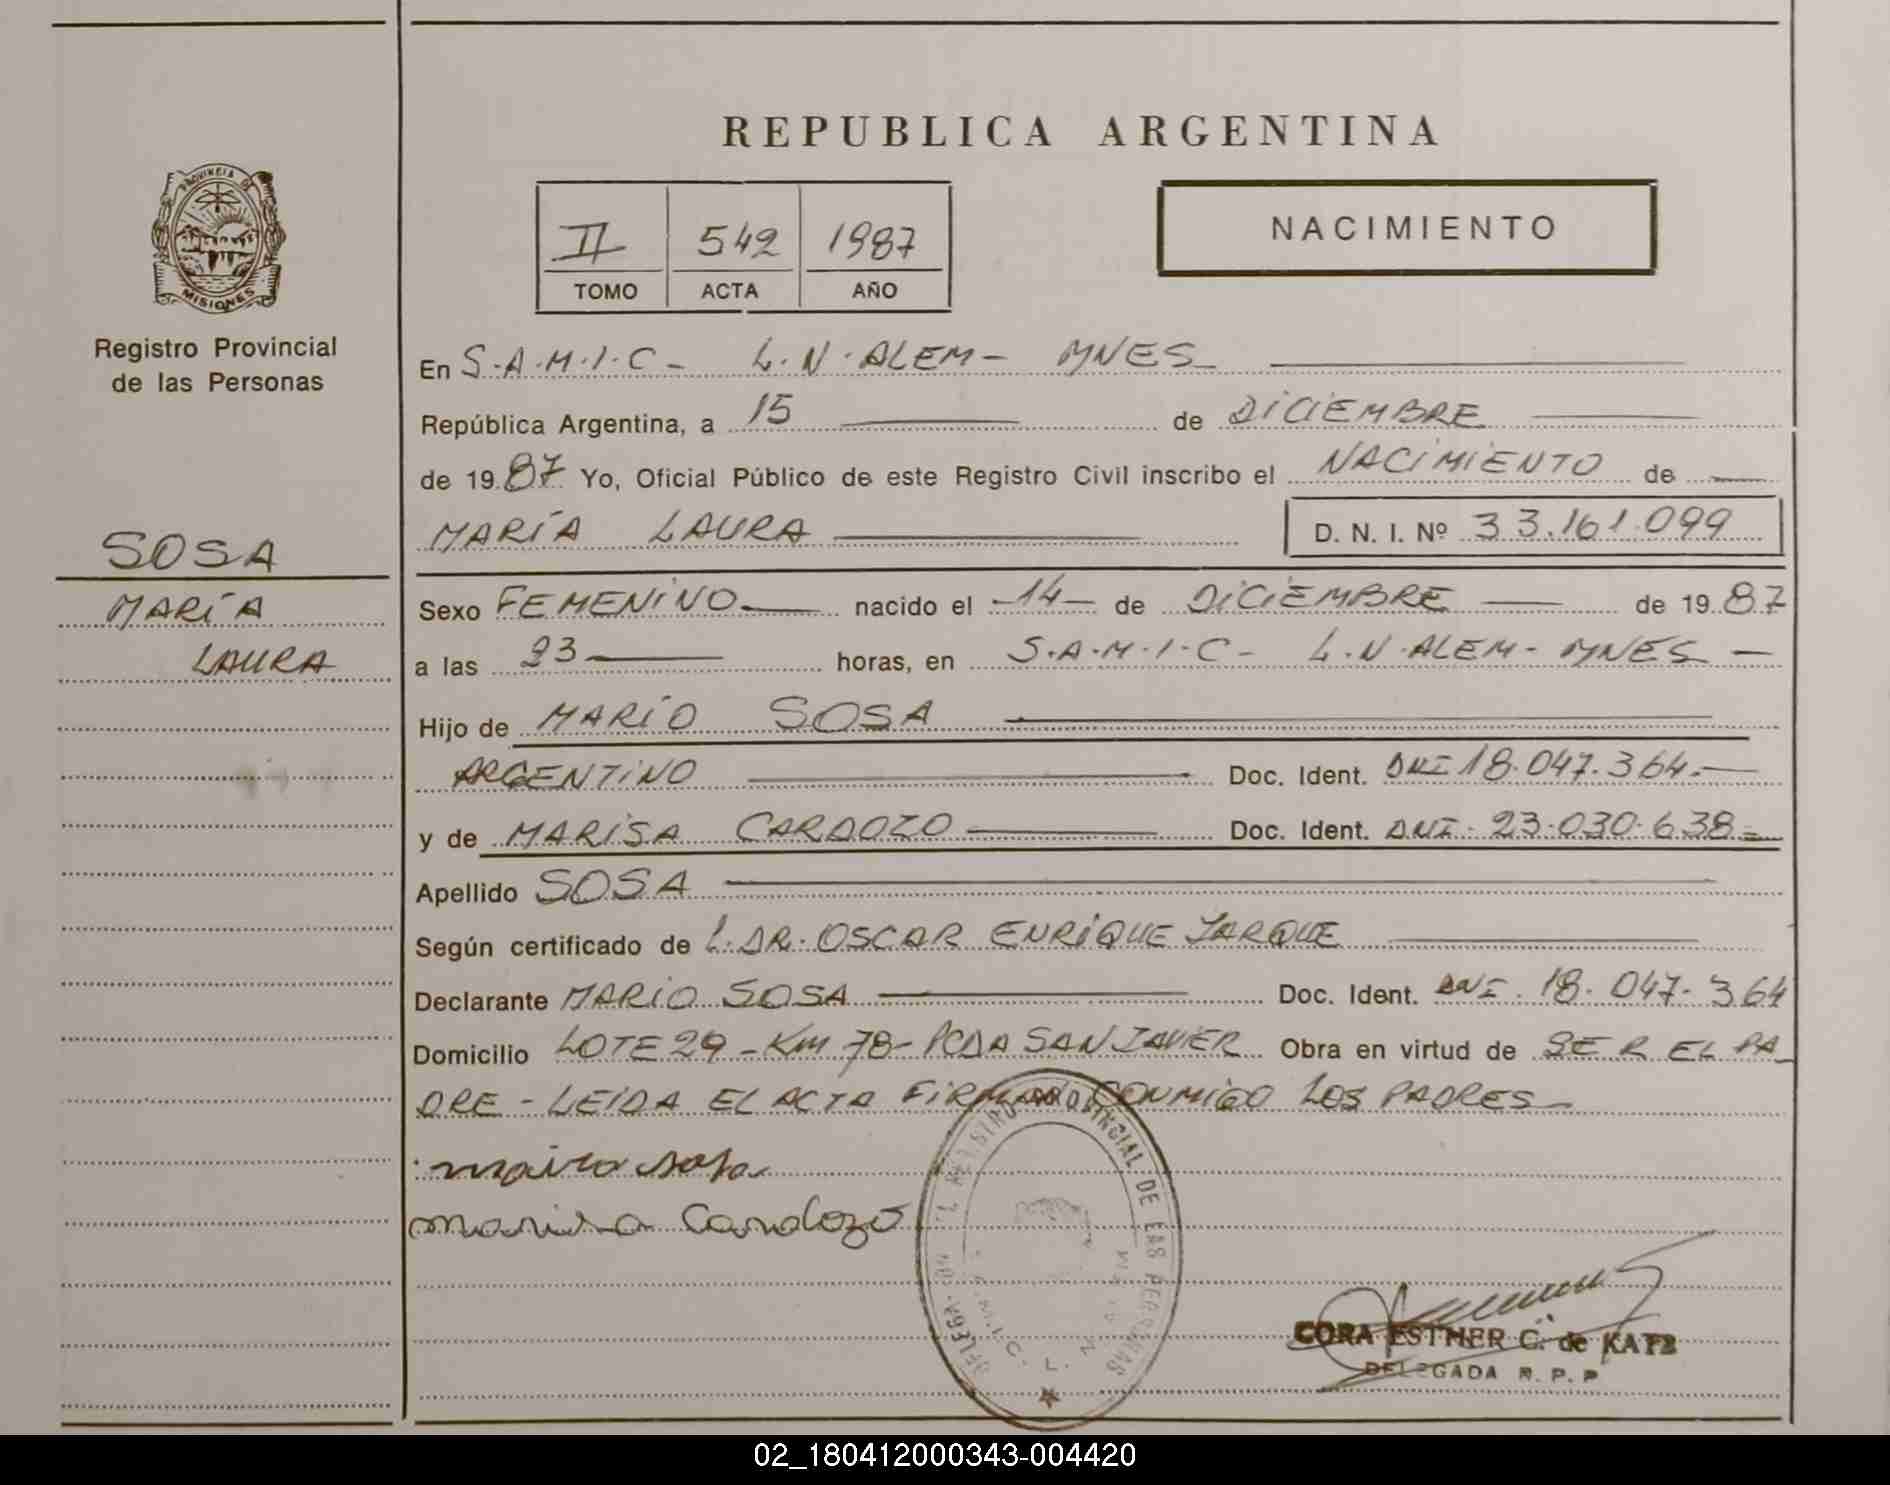 REPUBLICA ARGENTINA
PROVINCIA DE
MISIONES
Registro Provincial
de las Personas
SOSA
MARÍA
LAURA
II 542 1987
TOMO ACTA AÑO
NACIMIENTO
En S.A.M.I.C - L.N. ALEM - MNES
República Argentina, a 15 de DICIEMBRE
de 1987 Yo, Oficial Público de este Registro Civil inscribo el NACIMIENTO de
MARÍA LAURA D. N. I. Nº 33.161.099
Sexo FEMENINO nacido el 14 de DICIEMBRE de 1987
a las 23 horas, en S.A.M.I.C - L.N. ALEM - MNES
Hijo de MARIO SOSA
ARGENTINO Doc. Ident. DNI 18.047.364.
y de MARISA CARDOZO Doc. Ident. DNI. 23.030.638
Apellido SOSA
Según certificado de DR. OSCAR ENRIQUE JARQUE
Declarante MARIO SOSA Doc. Ident. DNI. 18.047.364
Domicilio LOTE 29 - Km 78 - PCDA SAN JAVIER Obra en virtud de SER EL PA-
DRE - LEIDA EL ACTA FIRMAN CONMIGO LOS PADRES
mario sosa
marisa Cardozo
REGISTRO PROVINCIAL DE LAS PERSONAS
CORA ESTHER C. de KATZ
DELEGADA R. P. P.
02_180412000343-004420